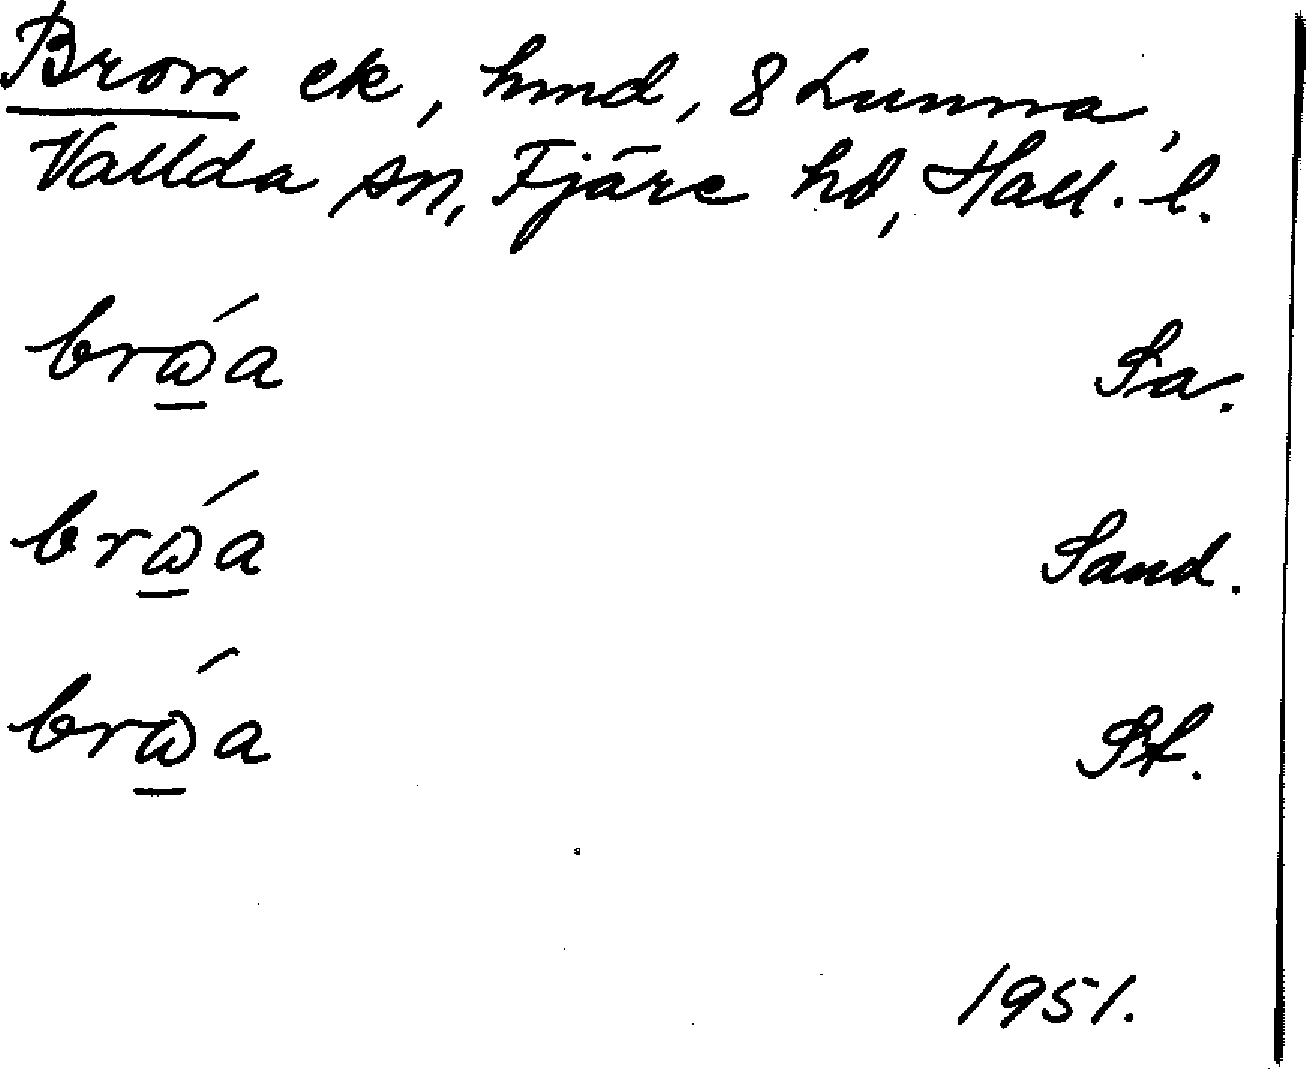 Bron ek, hmd, 8 Lunna,
Vallda sn, Fjäre hd, Hall. l.
brώ̲a Sa.
brώ̲a Sand.
brώ̲a St.
1951.